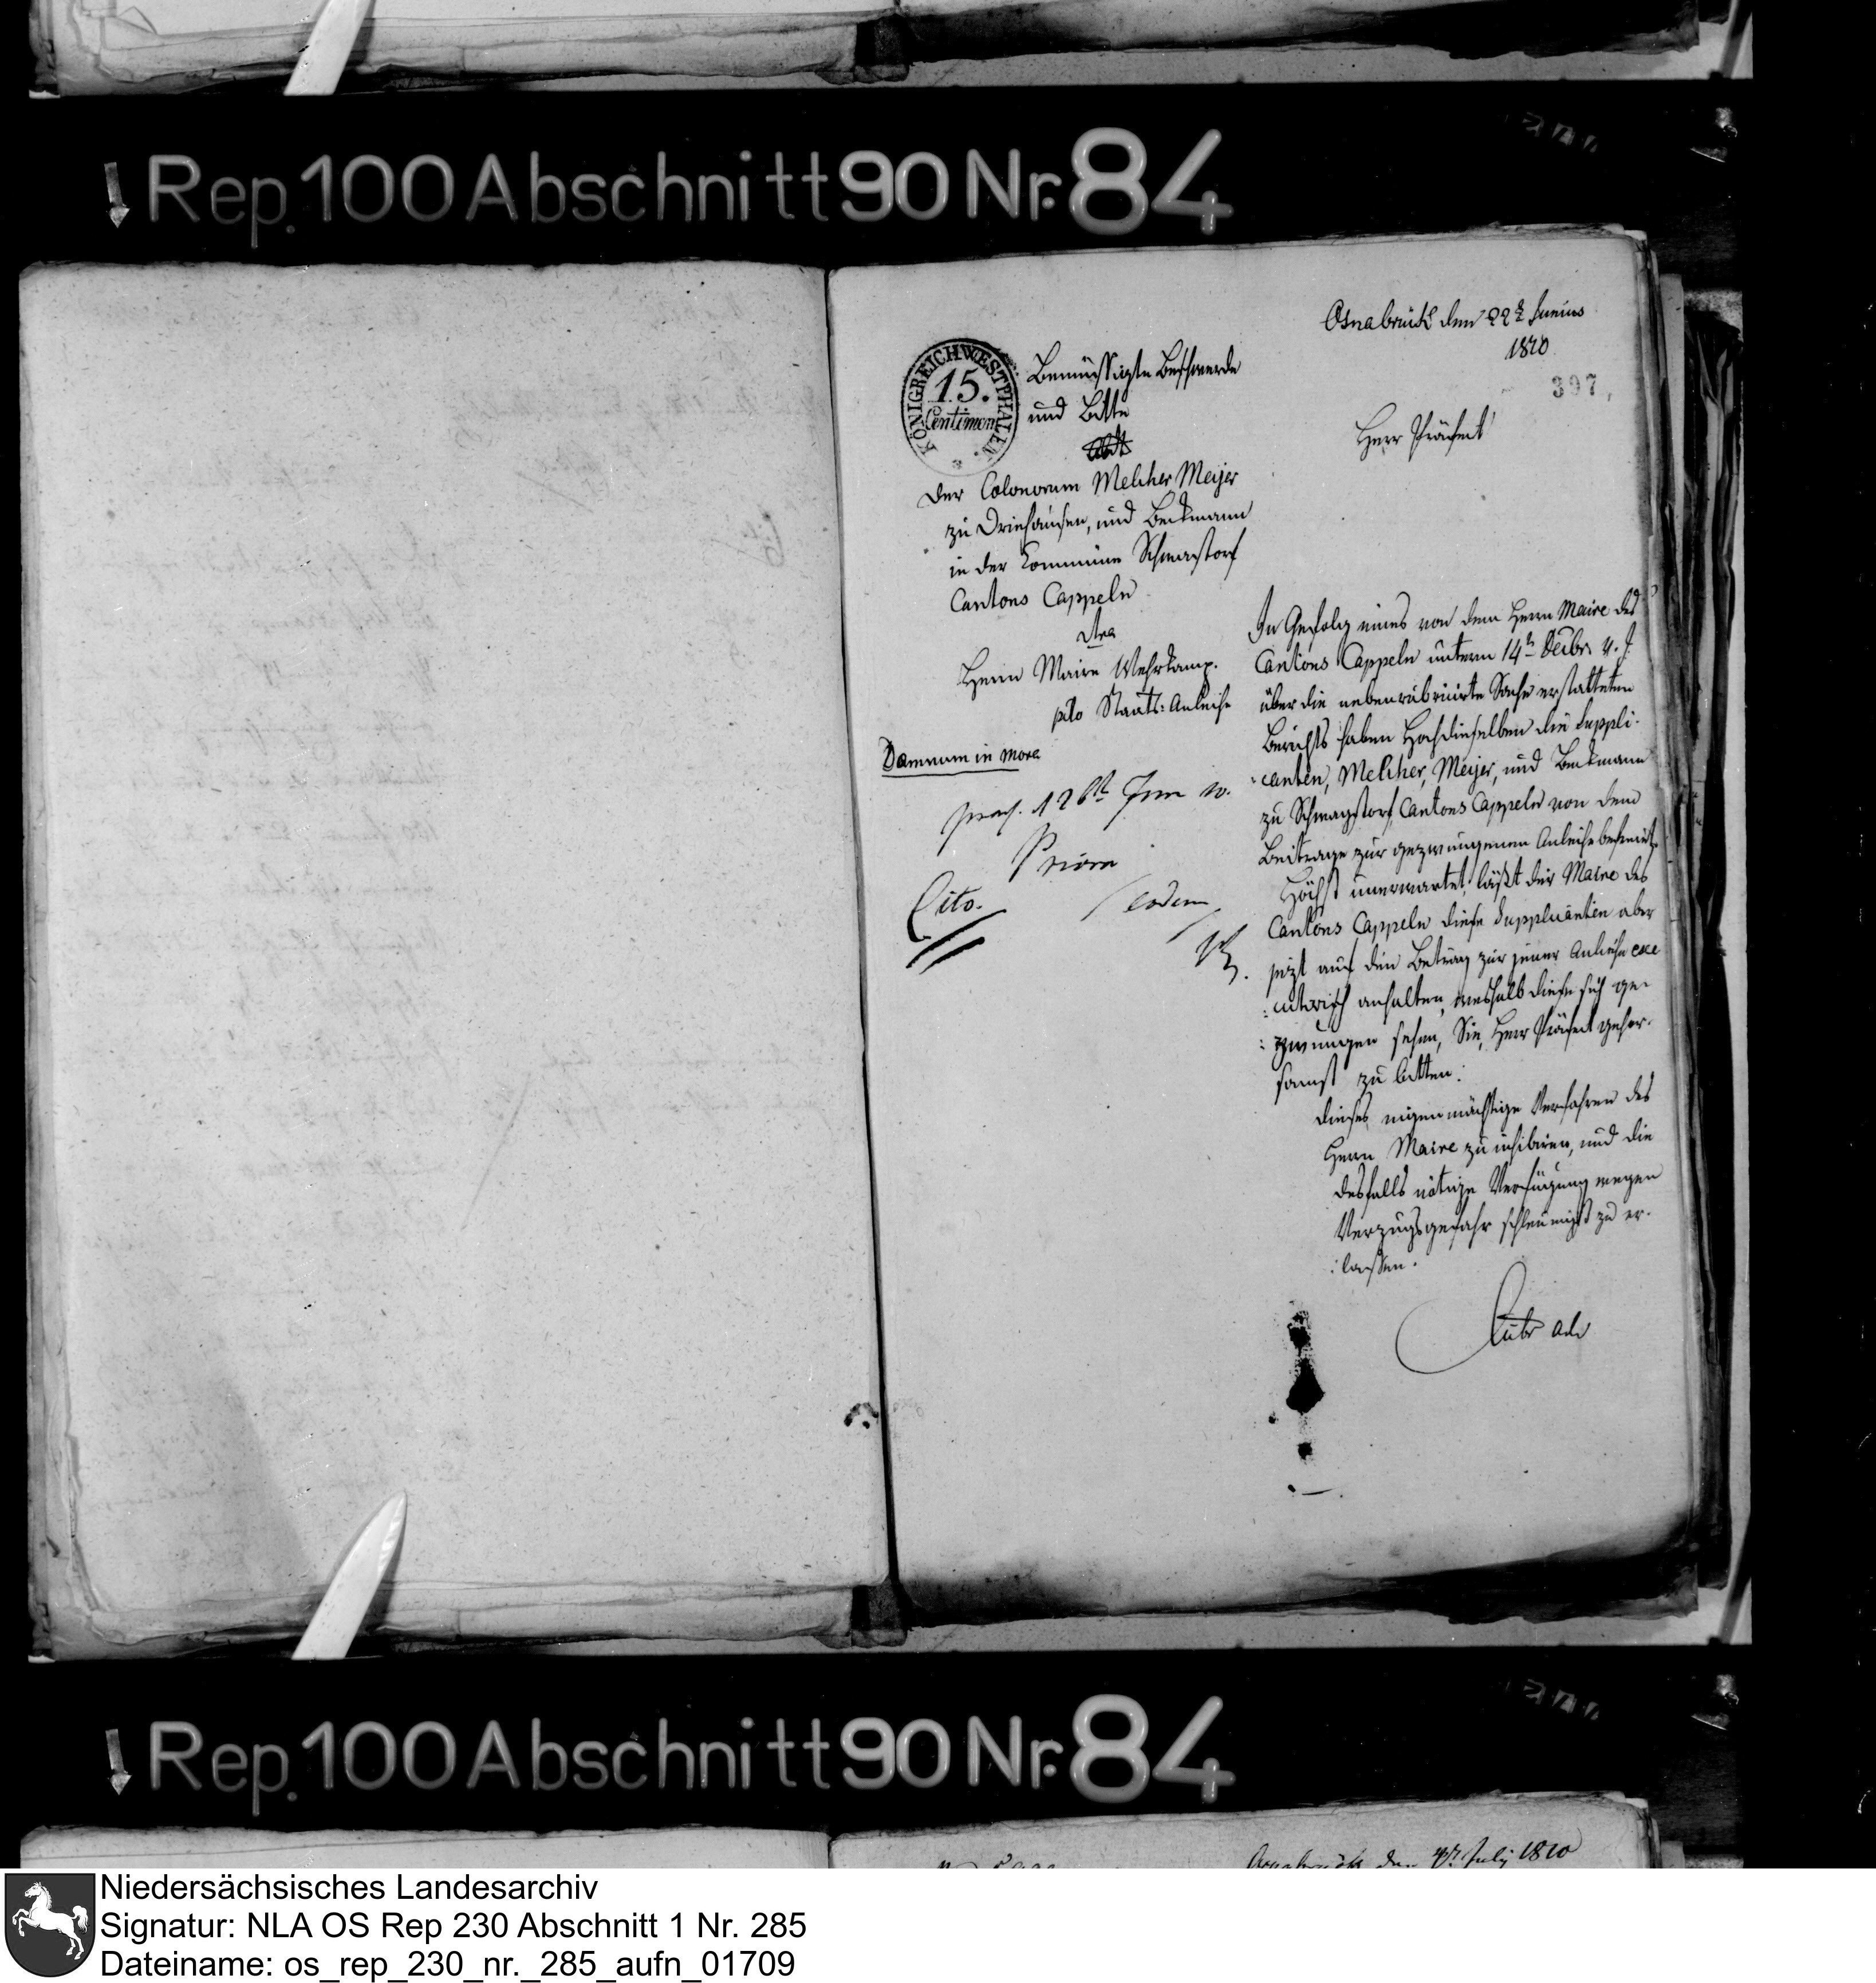 Rep. 100 Abschnitt 90 Nr. 84
Osnabrück den 22t Junius
1810
397
KÖNIGREICH WESTPHALEN
15.
Centimen
Bemüssigte Beschwerde
und Bitte
Herr Präfect
Der Colonorum Melcher Meijer
zu Driehausen, und Beckmann
in der Commüne Schwagstorf
Cantons Cappeln
ctra
Herrn Maire Wehrkamp.
pcto Staats: Anleihe
Damnum in mora
In Gefolg eines von dem Herrn Maire des
Cantons Cappeln unterm 14t Decbr. v. J.
über die nebenrubricirte Sache erstatteten
Berichts haben Hochdieselben die Suppli-
:canten, Melcher, Meijer, und Beckmann
zu Schwagstorf, Cantons Cappeln von dem
Beitrage zur gezwungenen Anleihe befreiet.
Höchst unerwartet läßt der Maire des
Cantons Cappeln diese Supplicanten aber
jezt auf den Betrag zur jener Anleihe exe
:cutivisch anhalten, weshalb diese sich ge-
:zwungen sehen, Sie, Herr Präfect gehor-
samst zu bitten:
dieses eigenmächtige Verfahren des
Herrn Maire zu inhibiren, und die
desfalls nötige Verfügung wegen
Verzugsgefahr schleunigst zu er-
:lassen.
Priora
Cito.
eodem
Rep. 100 Abschnitt 90 Nr. 84
July 1810
Niedersächsisches Landesarchiv
Signatur: NLA OS Rep 230 Abschnitt 1 Nr. 285
Dateiname: os_rep_230_nr._285_aufn_01709